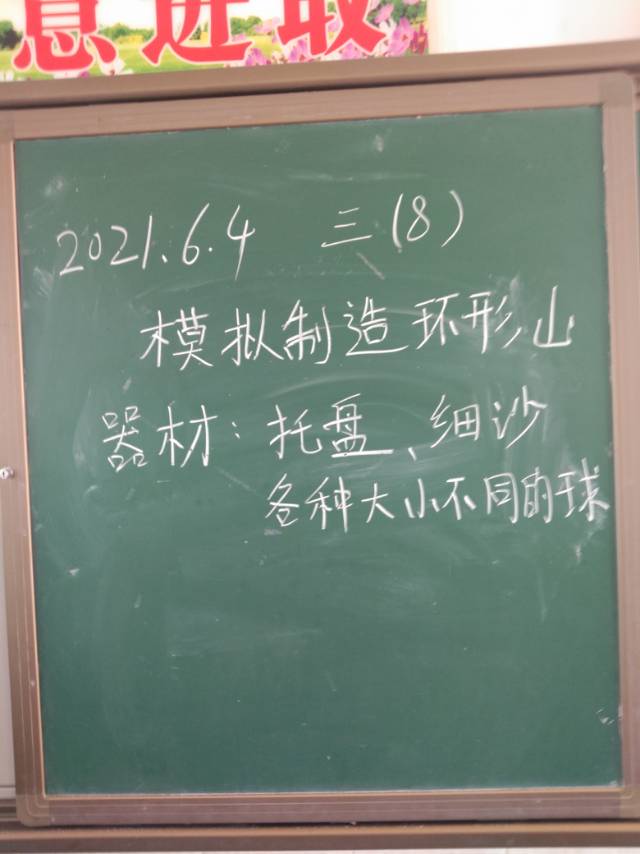 意进取
2021.6.4 三(8)
模拟制造环形山
器材:托盘、细沙
各种大小不同的球